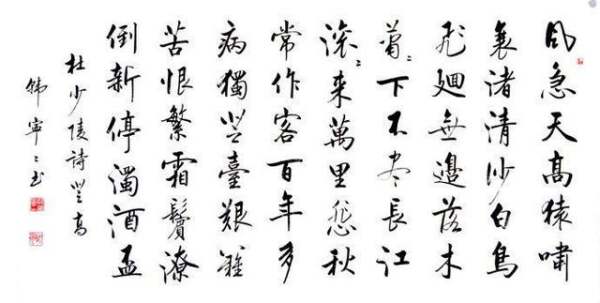 風急天高猿嘯
哀渚清沙白鳥
飛廻無邊落木
蕭〻下不尽長江
滚〻来萬里悲秋
常作客百年多
病獨登臺艱難
苦恨繁霜鬢潦
倒新停濁酒盃
杜少陵詩登高
韩寧〻书